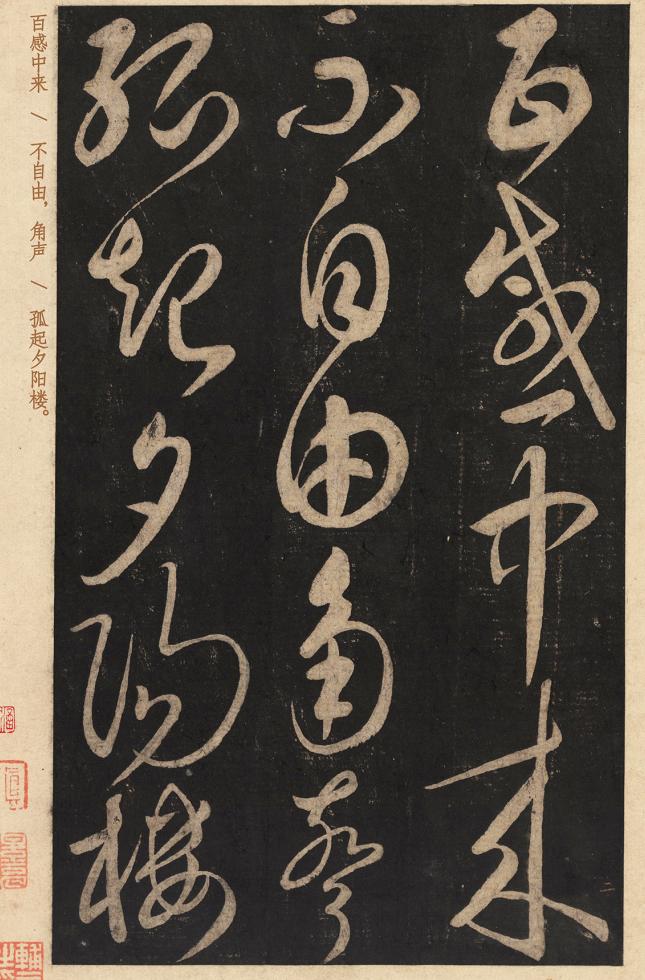 百感中来
不自由角声
孤起夕阳楼
百感中来 \ 不自由，角声 \ 孤起夕阳楼。